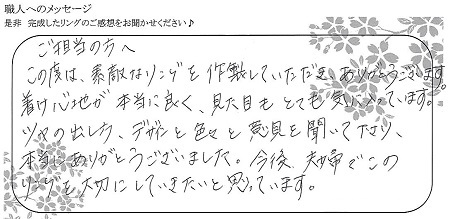 職人へのメッセージ
是非 完成したリングのご感想をお聞かせください♪
ご担当の方へ
この度は、素敵なリングを作製していただき、ありがとうございます。
着け心地が本当に良く、見た目もとても気に入っています。
ツヤの出し方、デザインと色々と意見を聞いて下さり、
本当にありがとうございました。今後、夫婦でこの
リングを大切にしていきたいと思っています。